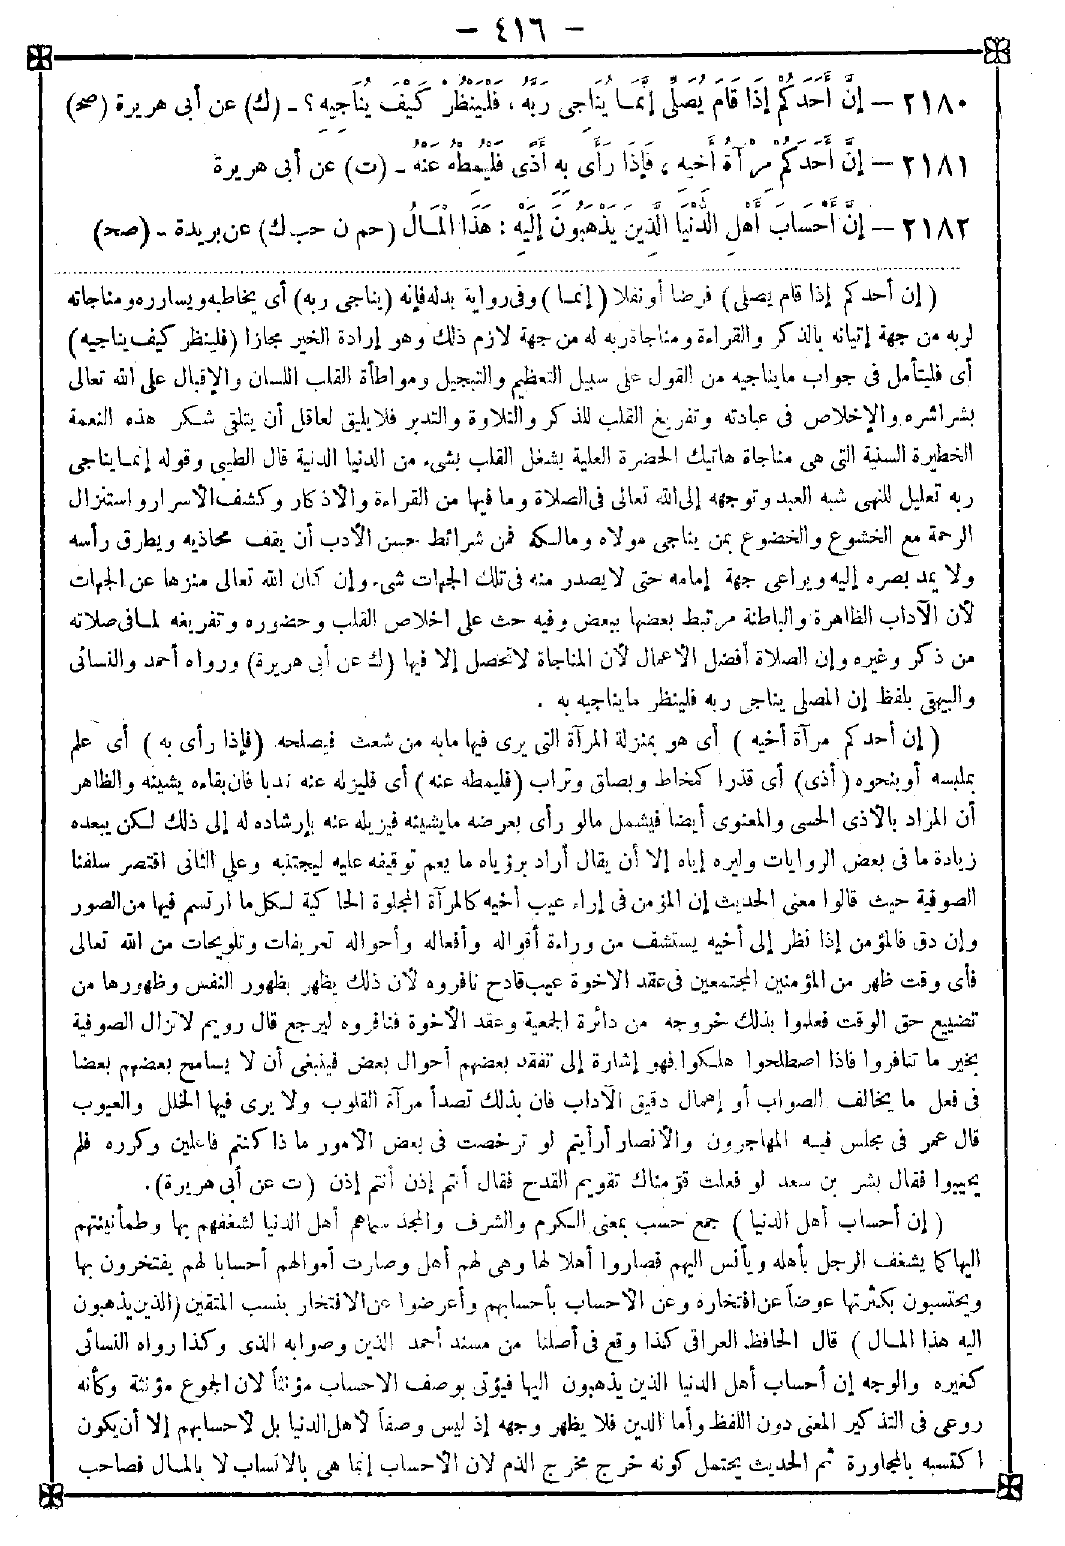 – ٤١٦ –
٢١٨٠ — إِنَّ أَحَدَكُمْ إِذَا قَامَ يُصَلِّي إِنَّمَا يُنَاجِي رَبَّهُ، فَلْيَنْظُرْ كَيْفَ يُنَاجِيهِ؟ - (ك) عن أبى هريرة (صح)
٢١٨١ — إِنَّ أَحَدَكُمْ مِرْآةُ أَخِيهِ، فَإِذَا رَأَى بِهِ أَذًى فَلْيُمِطْهُ عَنْهُ - (ت) عن أبى هريرة
٢١٨٢ — إِنَّ أَحْسَابَ أَهْلِ الدُّنْيَا الَّذِينَ يَذْهَبُونَ إِلَيْهِ: هَذَا الْمَالُ (حم ن حب ك) عن بريدة - (صح)
( إن أحدكم إذا قام يصلى) فرضا أو نفلا (إنمـا) وفى رواية بدله فإنه (يناجى ربه) أى يخاطبه ويسارره ومناجاته
لربه من جهة إتيانه بالذكر والقراءة ومناجاة ربه له من جهة لازم ذلك وهو إرادة الخير مجازا (فلينظر كيف يناجيه)
أى فليتأمل فى جواب ما يناجيه من القول على سبيل التعظيم والتبجيل ومواطأة القلب اللسان والإقبال على الله تعالى
بشراشره والإخلاص فى عبادته وتفريغ القلب للذكر والتلاوة والتدبر فلا يليق لعاقل أن يتلقى شكر هذه النعمة
الخطيرة السنية التى هى مناجاة هاتيك الحضرة العلية بشغل القلب بشىء من الدنيا الدنية قال الطيبى وقوله إنمـا يناجى
ربه تعليل للنهى شبه العبد وتوجهه إلى الله تعالى فى الصلاة وما فيها من القراءة والأذكار وكشف الأسرار واستنزال
الرحمة مع الخشوع والخضوع بمن يناجى مولاه ومالكه فمن شرائط حسن الأدب أن يقف محاذيه ويطرق رأسه
ولا يمد بصره إليه ويراعى جهة إمامه حتى لا يصدر منه فى تلك الجهات شىء وإن كان الله تعالى منزها عن الجهات
لأن الآداب الظاهرة والباطنة مرتبط بعضها ببعض وفيه حث على اخلاص القلب وحضوره وتفريغه لمـا فى صلاته
من ذكر وغيره وإن الصلاة أفضل الأعمال لأن المناجاة لا تحصل إلا فيها (ك عن أبى هريرة) ورواه أحمد والنسائى
والبيهقى بلفظ إن المصلى يناجى ربه فلينظر ما يناجيه به .
( إن أحدكم مرآة أخيه ) أى هو بمنزلة المرآة التى يرى فيها ما به من شعث فيصلحه (فإذا رأى به ) أى علم
بملبسه أو بنحوه (أذى) أى قذرا كمخاط وبصاق وتراب (فليمطه عنه) أى فليزله عنه ندبا فان بقاءه يشينه والظاهر
أن المراد بالأذى الحسى والمعنوى أيضا فيشمل ما لو رأى بعرضه ما يشينه فيزيله عنه بإرشاده له إلى ذلك لكن يبعده
زيادة ما فى بعض الروايات وليره إياه إلا أن يقال أراد برؤياه ما يعم توقيفه عليه ليجتنبه وعلى الثانى اقتصر سلفنا
الصوفية حيث قالوا معنى الحديث إن المؤمن فى إراء عيب أخيه كالمرآة المجلوة الحاكية لكل ما ارتسم فيها من الصور
وإن دق فالمؤمن إذا نظر إلى أخيه يستشف من وراءة أقواله وأفعاله وأحواله تعريفات وتلويحات من الله تعالى
فأى وقت ظهر من المؤمنين المجتمعين فى عقد الاخوة عيب قادح نافروه لأن ذلك يظهر بظهور النفس وظهورها من
تضييع حق الوقت فعلموا بذلك خروجه من دائرة الجمعية وعقد الأخوة فنافروه ليرجع قال رويم لا تزال الصوفية
بخير ما تنافروا فاذا اصطلحوا هلكوا فهو إشارة إلى تفقد بعضهم أحوال بعض فينبغى أن لا يسامح بعضهم بعضا
فى فعل ما يخالف الصواب أو إهمال دقيق الآداب فان بذلك تصدأ مرآة القلوب ولا يرى فيها الخلل والعيوب
قال عمر فى مجلس فيه المهاجرون والأنصار أرأيتم لو ترخصت فى بعض الأمور ماذا كنتم فاعلين وكرره فلم
يجيبوا فقال بشر بن سعد لو فعلت قومناك تقويم القدح فقال أنتم إذن أنتم إذن (ت عن أبى هريرة).
( إن أحساب أهل الدنيا ) جمع حسب بمعنى الكرم والشرف والمجد سماهم أهل الدنيا لشغفهم بها وطمأنينتهم
اليها كما يشغف الرجل بأهله ويأنس اليهم فصاروا أهلا لها وهى لهم أهل وصارت أموالهم أحسابا لهم يفتخرون بها
ويحتسبون بكثرتها عوضاً عن افتخاره وعن الأحساب بأحسابهم وأعرضوا عن الافتخار بنسب المتقين (الذين يذهبون
اليه هذا المـال ) قال الحافظ العراقى كذا وقع فى أصلنا من مسند أحمد الذين وصوابه الذى وكذا رواه النسائى
كغيره والوجه إن أحساب أهل الدنيا الذين يذهبون اليها فيؤتى بوصف الأحساب مؤنثاً لأن الجموع مؤنثة وكأنه
روعى فى التذكير المعنى دون اللفظ وأما الدين فلا يظهر وجهه إذ ليس وصفاً لأهل الدنيا بل لأحسابهم إلا أن يكون
اكتسبه بالمجاورة ثم الحديث يحتمل كونه خرج مخرج الذم لأن الأحساب إنما هى بالأنساب لا بالمـال فصاحب